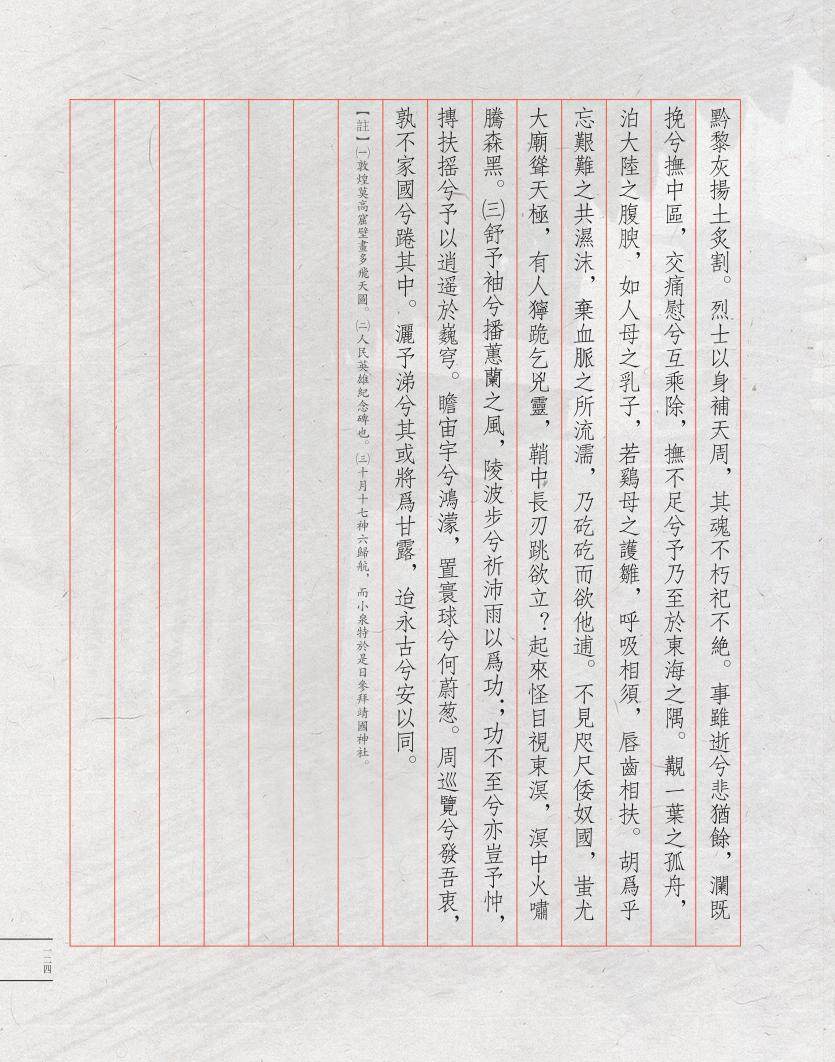 黔黎灰揚土炙割。烈士以身補天周，其魂不朽祀不絶。事雖逝兮悲猶餘，瀾既
挽兮撫中區，交痛慰兮互乘除，撫不足兮予乃至於東海之隅。覯一葉之孤舟，
泊大陸之腹腴，如人母之乳子，若鷄母之護雛，呼吸相須，唇齒相扶。胡爲乎
忘艱難之共濕沫，棄血脈之所流濡，乃矻矻而欲他逋。不見咫尺倭奴國，蚩尤
大廟聳天極，有人獰跪乞兇靈，鞘中長刃跳欲立？起來怪目視東溟，溟中火嘯
騰森黑。㈢舒予袖兮播蕙蘭之風，陵波步兮祈沛雨以爲功；功不至兮亦豈予忡，
摶扶摇兮予以逍遥於巍穹。瞻宙宇兮鴻濛，置寰球兮何蔚葱。周巡覽兮發吾衷，
孰不家國兮踡其中。灑予涕兮其或將爲甘露，迨永古兮安以同。
【註】㈠敦煌莫高窟壁畫多飛天圖。㈡人民英雄紀念碑也。㈢十月十七神六歸航，而小泉特於是日參拜靖國神社。
一二四